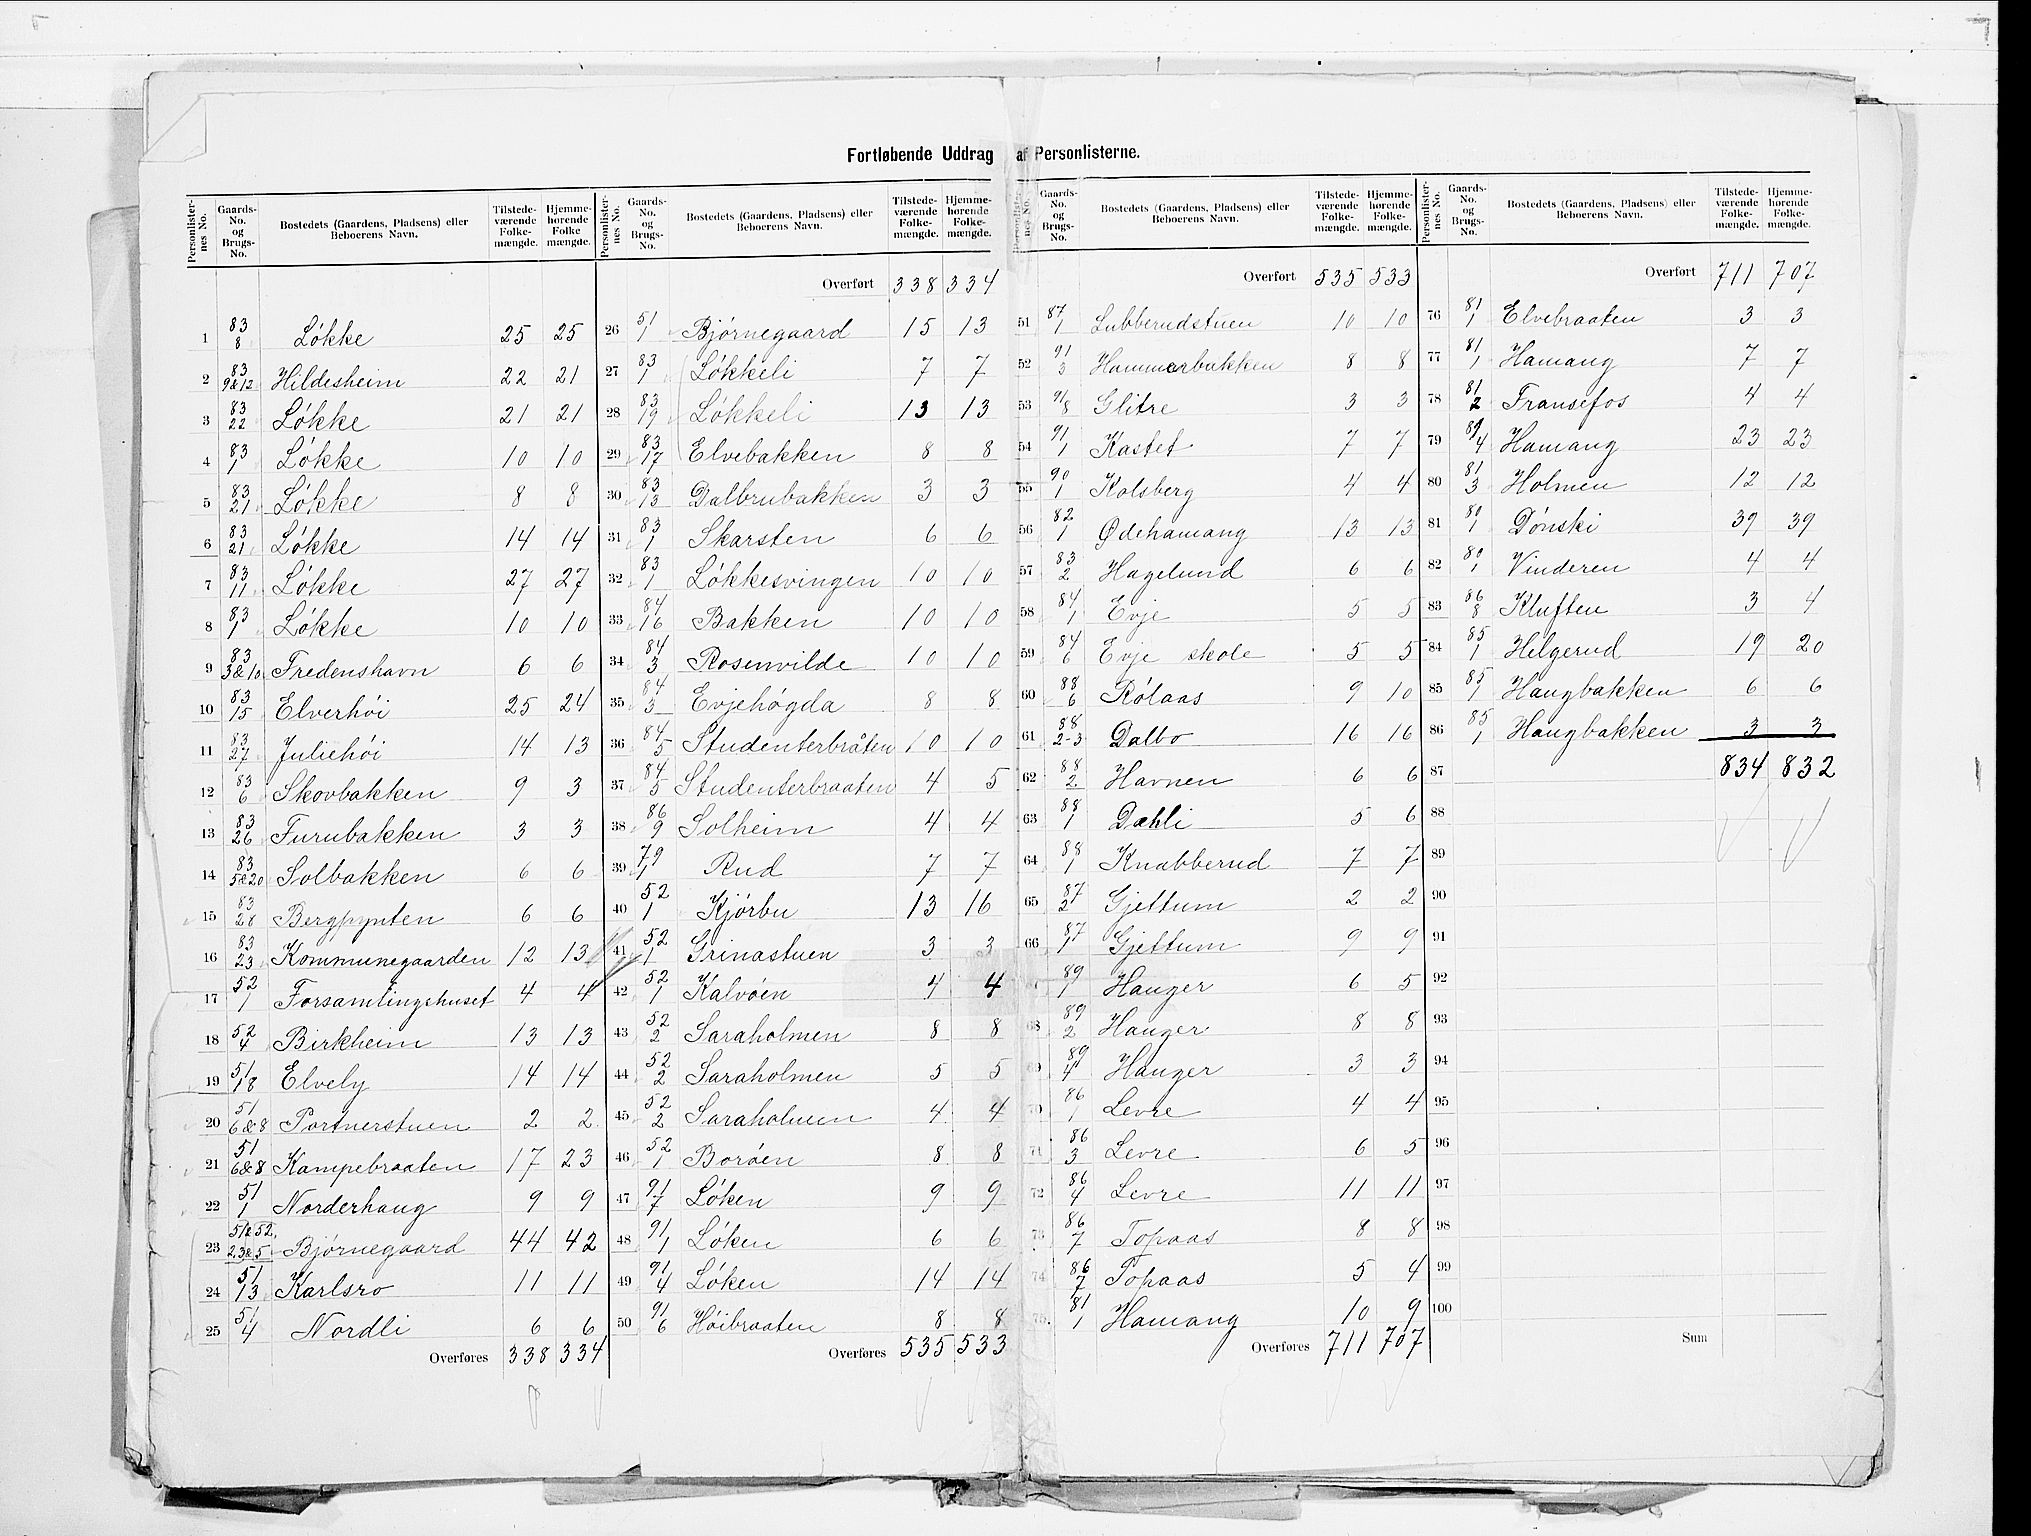 Fortløbende Uddrag af Personlisterne.
Personlisternes No. | Gaards-No. og Brugs-No. | Bostedets (Gaardens, Pladsens) eller Beboerens Navn. | Tilstedeværende Folkemængde. | Hjemmehørende Folkemængde.
1 83/8 Løkke 25 25
2 83/9&12 Hildesheim 22 21
3 83/22 Løkke 21 21
4 83/1 Løkke 10 10
5 83/21 Løkke 8 8
6 83/21 Løkke 14 14
7 83/11 Løkke 27 27
8 83/1 Løkke 10 10
9 83/3&10 Fredenshavn 6 6
10 83/15 Elverhöi 25 24
11 83/27 Juliehöi 14 13
12 83/6 Skovbakken 9 3
13 83/26 Furubakken 3 3
14 83/5&20 Solbakken 6 6
15 83/28 Bergpynten 6 6
16 83/23 Kommunegaarden 12 13
17 52/1 Forsamlingshuset 4 4
18 52/4 Birkheim 13 13
19 51/18 Elvely 14 14
20 51/6&8 Portnerstuen 2 2
21 51/6&8 Kampebraaten 17 23
22 51/1 Norderhaug 9 9
23 51&52/2,3&5 Bjørnegaard 44 42
24 51/13 Karlsro 11 11
25 51/4 Nordli 6 6
Overføres 338 334
Personlisternes No. | Gaards-No. og Brugs-No. | Bostedets (Gaardens, Pladsens) eller Beboerens Navn. | Tilstedeværende Folkemængde. | Hjemmehørende Folkemængde.
Overført 338 334
26 51/1 Bjørnegaard 15 13
27 83/1 Løkkeli 7 7
28 83/19 Løkkeli 13 13
29 83/17 Elvebakken 8 8
30 83/13 Dalbrubakken 3 3
31 83/1 Skarsten 6 6
32 83/1 Løkkesvingen 10 10
33 84/16 Bakken 10 10
34 84/3 Rosenvilde 10 10
35 84/3 Evjehøgda 8 8
36 84/5 Studenterbråten 10 10
37 84/5 Studenterbraaten 4 5
38 86/9 Solheim 4 4
39 79/1 Rud 7 7
40 52/1 Kjørbu 13 16
41 52/1 Grinastuen 3 3
42 52/1 Kalvøen 4 4
43 52/2 Saraholmen 8 8
44 52/2 Saraholmen 5 5
45 52/2 Saraholmen 4 4
46 52/1 Borøen 8 8
47 91/7 Løken 9 9
48 91/1 Løken 6 6
49 91/4 Løken 14 14
50 91/6 Höibraaten 8 8
Overføres 535 533
Personlisternes No. | Gaards-No. og Brugs-No. | Bostedets (Gaardens, Pladsens) eller Beboerens Navn. | Tilstedeværende Folkemængde. | Hjemmehørende Folkemængde.
Overført 535 533
51 87/1 Lubberudstuen 10 10
52 91/3 Hammerbakken 8 8
53 91/8 Glitre 3 3
54 91/1 Kastet 7 7
55 90/1 Kolsberg 4 4
56 82/1 Ødehamang 13 13
57 83/2 Hagelund 6 6
58 84/1 Evje 5 5
59 84/6 Evje skole 5 5
60 88/6 Rölaas 9 10
61 88/2-3 Dalbo 16 16
62 88/2 Havnen 6 6
63 88/1 Dæhli 5 6
64 88/1 Knabberud 7 7
65 87/2 Gjettum 2 2
66 87/1 Gjettum 9 9
67 89/1 Hauger 6 5
68 89/2 Hauger 8 8
69 89/4 Hauger 3 3
70 86/1 Levre 4 4
71 86/3 Levre 6 5
72 86/4 Levre 11 11
73 86/7 Topaas 8 8
74 86/7 Topaas 5 4
75 81/1 Hamang 10 9
Overføres 711 707
Personlisternes No. | Gaards-No. og Brugs-No. | Bostedets (Gaardens, Pladsens) eller Beboerens Navn. | Tilstedeværende Folkemængde. | Hjemmehørende Folkemængde.
Overført 711 707
76 81/1 Elvebraaten 3 3
77 81/1 Hamang 7 7
78 81/2 Fransefos 4 4
79 81/4 Hamang 23 23
80 81/3 Holmen 12 12
81 80/1 Dönski 39 39
82 80/1 Vinderen 4 4
83 86/8 Kluften 3 4
84 85/1 Helgerud 19 20
85 85/1 Haugbakken 6 6
86 85/1 Haugbakken 3 3
87 834 832
88
89
90
91
92
93
94
95
96
97
98
99
100
Sum